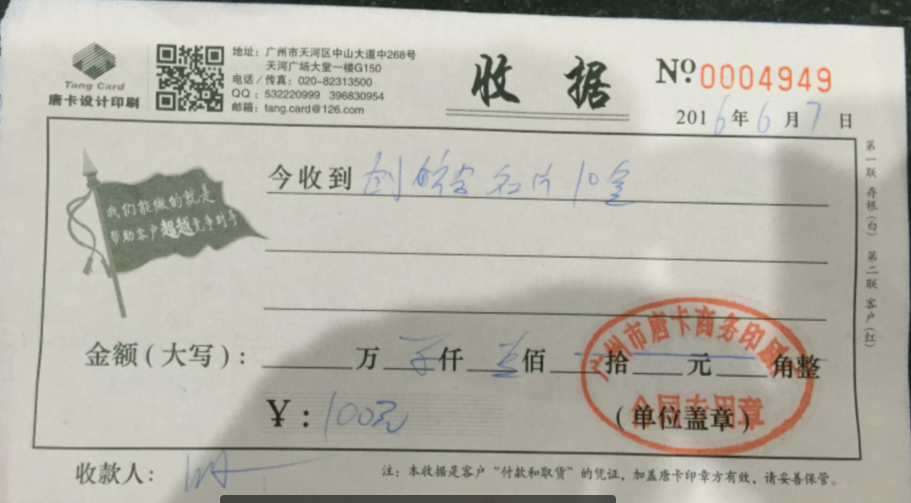 Tang Card
唐卡设计印刷
地址：广州市天河区中山大道中268号
天河广场大堂一楼G150
电话／传真：020-82313500
QQ：532220999 396830954
邮箱：tang.card@126.com
收据
Nº 0004949
2016年6月7日
今收到 名片10盒
我们能做的就是
帮助客户超越竞争对手
金额（大写）：万 仟 壹佰 拾 元 角整
¥：100元
（单位盖章）
广州市唐卡商务印
合同专用章
收款人：
注：本收据是客户“付款和取货”的凭证，加盖唐卡印章方有效，请妥善保管。
第一联 存根（白） 第二联 客户（红）